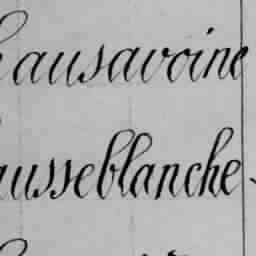 ausavoine
ausseblanche